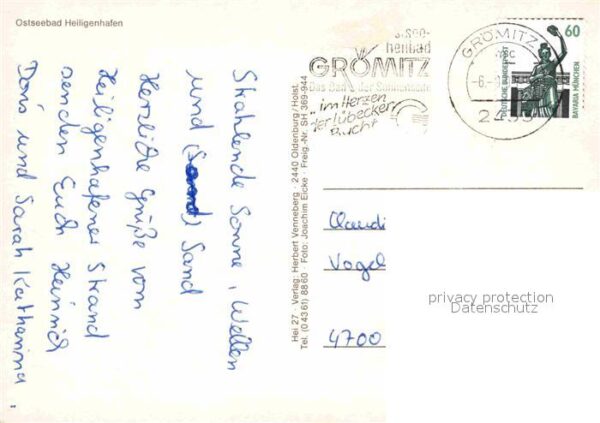 Ostseebad Heiligenhafen
Strahlende Sonne, Wellen
und (Sand) Sand
Herzliche Grüße vom
Heiligenhafener Strand
senden Euch Heinrich
Doris und Sarah Katharina
Hei 27 · Verlag: Herbert Venneberg · 2440 Oldenburg/Holst.
Tel. (0 43 61) 88 60 · Foto: Joachim Eicke · Freig.-Nr. SH 369-944
heilbad
GRÖMITZ
Das Bad der Sonnenseite
"im Herzen
der Lübecker
Bucht"
GRÖMITZ
60
DEUTSCHE BUNDESPOST
BAVARIA MÜNCHEN
Claudi
Vogel
4700
privacy protection
Datenschutz